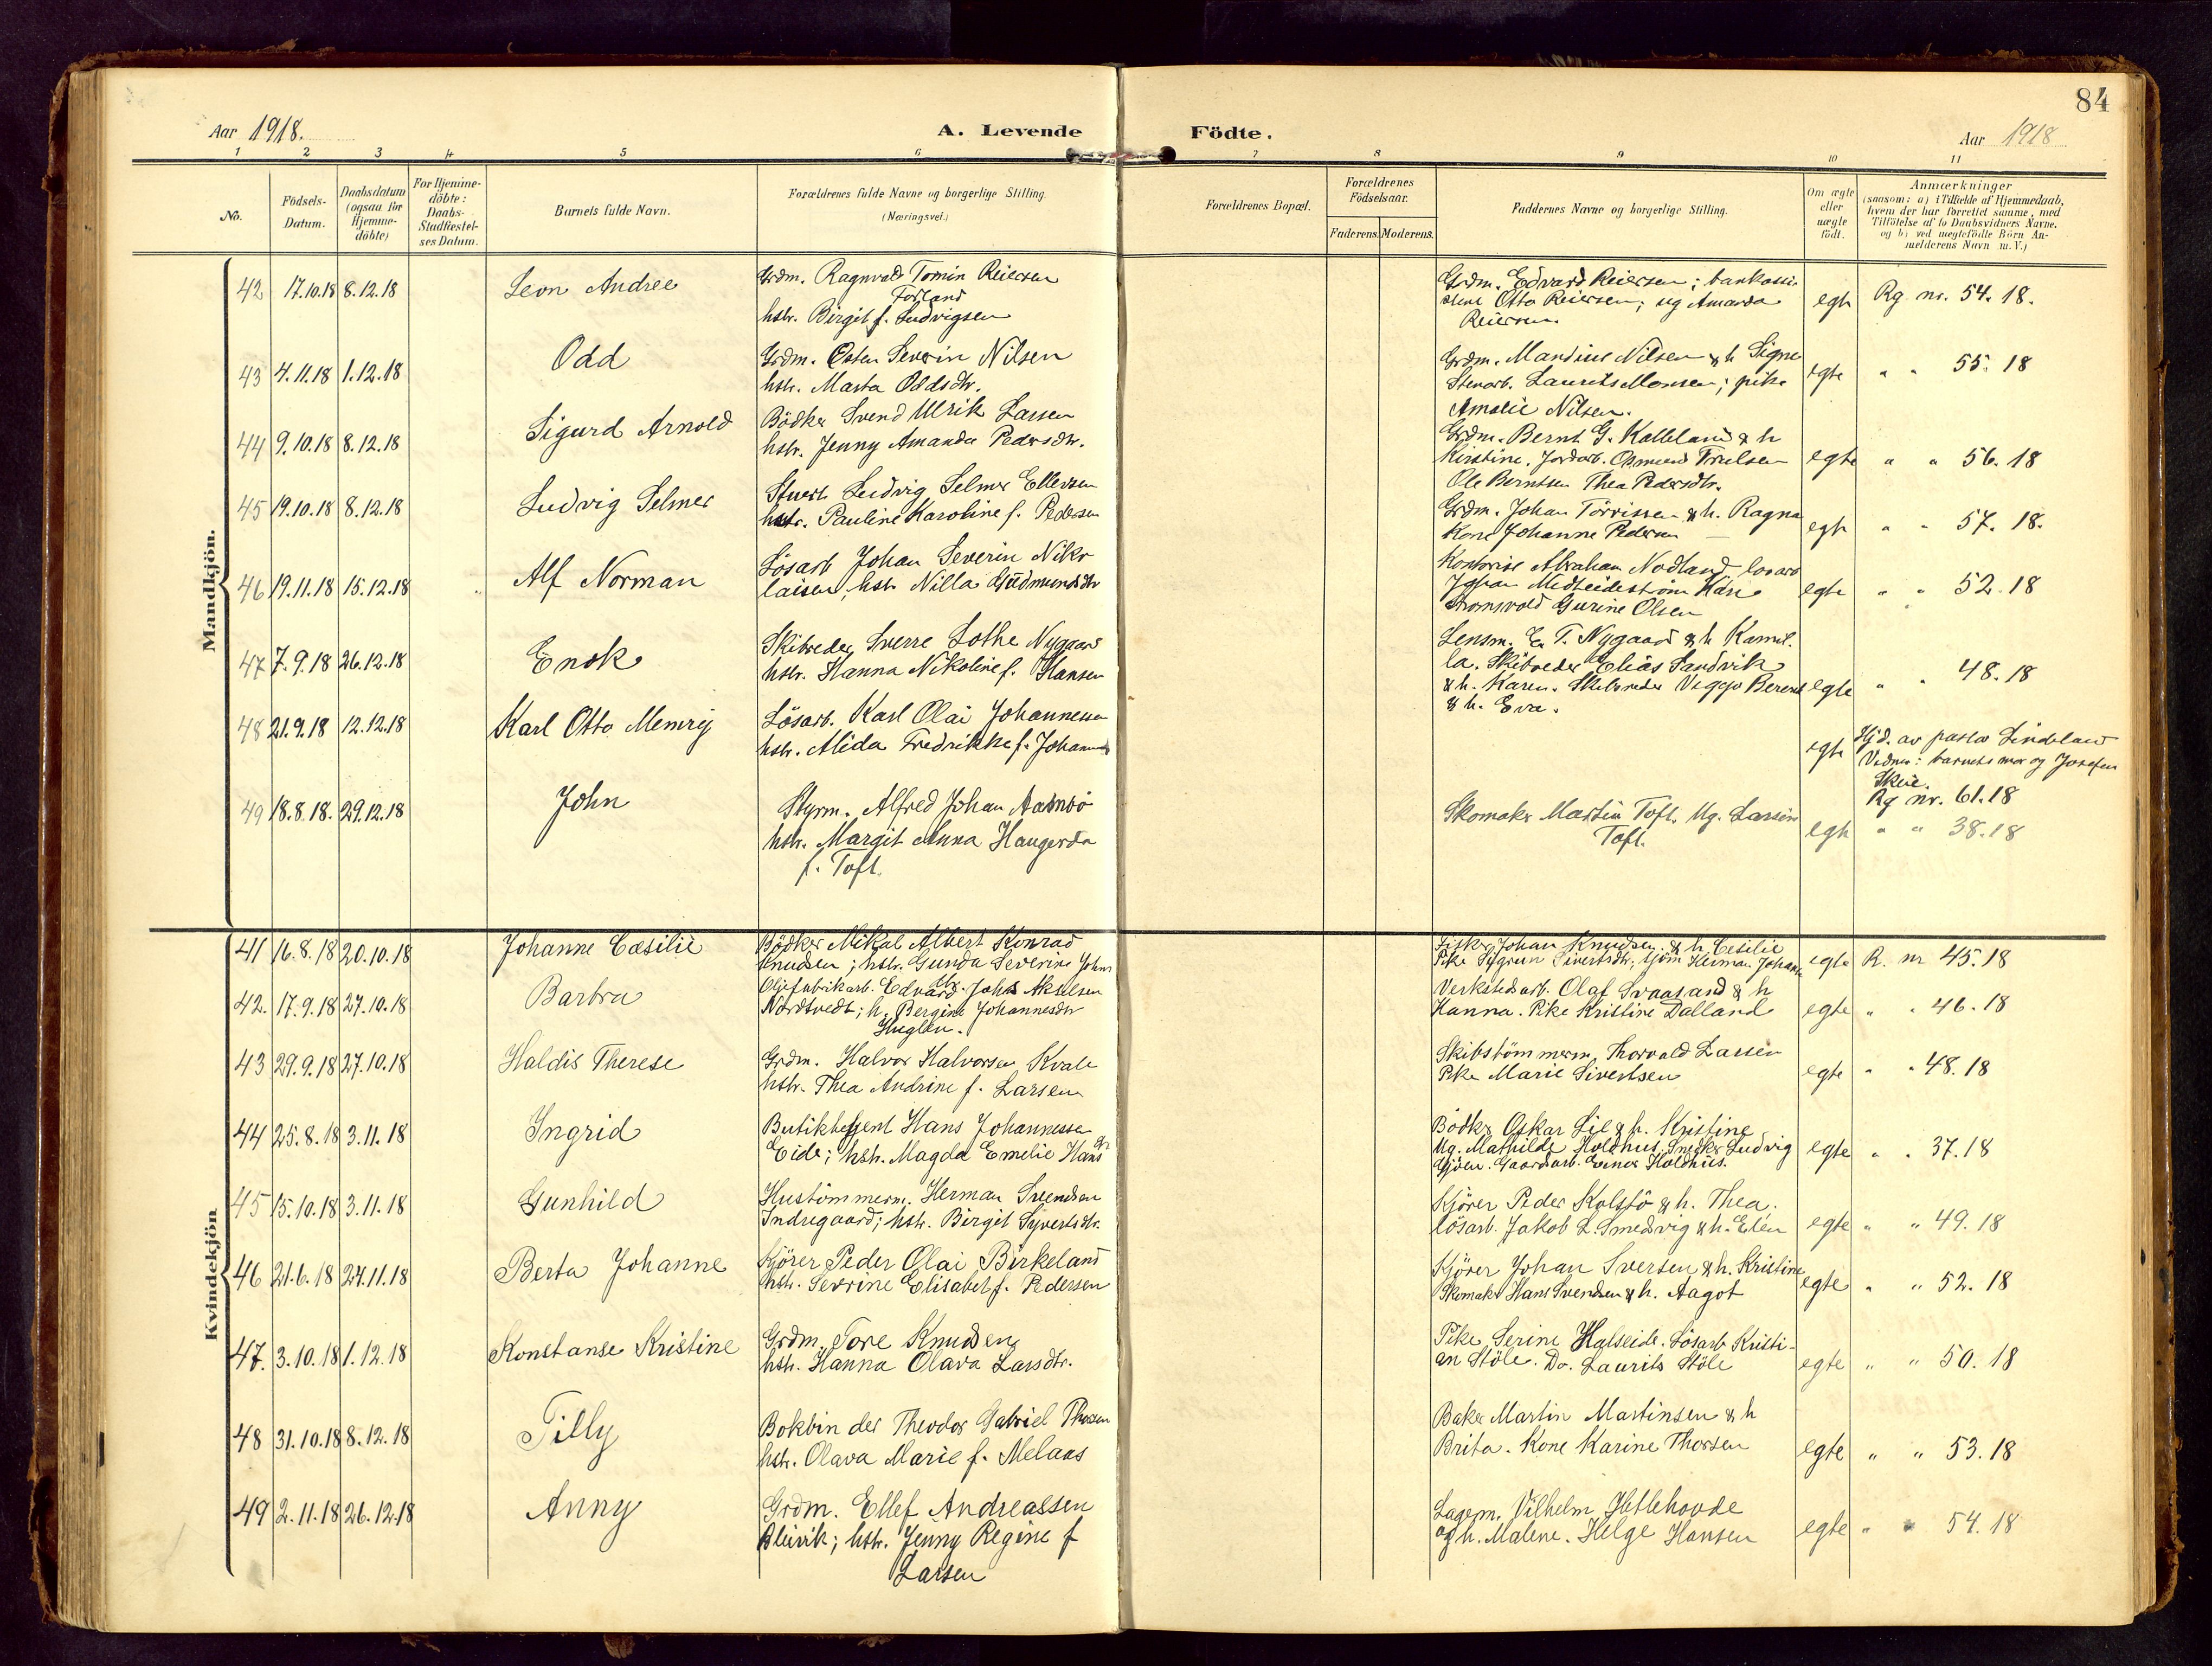 84
Aar 1918.
A. Levende
Födte.
Aar 1918
1 2 3 4 5 6 7 8 9 10 11
No.
Födsels-
Datum.
Daabsdatum
(ogsaa for
Hjemme-
döbte)
For Hjemme-
döbte:
Daabs-
Stadfæstel-
ses Datum.
Barnets fulde Navn.
Forældrenes fulde Navne og borgerlige Stilling.
(Næringsvei.)
Forældrenes Bopæl.
Forældrenes
Födselsaar.
Faderens. Moderens.
Faddernes Navne og borgerlige Stilling.
Om ægte
eller
uægte
födt.
Anmærkninger
(saasom: a) i Tilfælde af Hjemmedaab,
hvem der har forrettet samme, med
Tilföielse af to Daabsvidners Navne,
og b) ved uægtefödte Börn An-
melderens Navn m. V.)
Mandkjön.
42 17.10.18 8.12.18 Leon Andree
Grdm. Ragnvald Tomin Reiersen
Forland
hstr. Birgit f. Ludvigsen
Grdm. Edvard Reiersen;
Otto Reiersen; ug Amanda
Reiersen.
egte Rg nr. 54. 18.
43 4.11.18 1.12.18 Odd
Grdm. Osten Severin Nilsen
hstr. Marta Oddsdtr.
Grdm. Mandius Nilsen & h Signe
Stenarb. Laurits Monsen; pike
Amalie Nilsen.
egte " " 55. 18
44 9.10.18 8.12.18 Sigurd Arnold
Bödker Svend Ulrik Larsen
hstr. Jenny Amanda Pedersdtr.
Grdm. Bernt G. Kalleland & h
Kirstine. Jordarb. Osmund Trulsen
Ole Berntsen Thea Pedersdtr.
egte " " 56. 18
45 19.10.18 8.12.18 Ludvig Selmer
Stuert Ludvig Selmer Ellevsen
hstr. Pauline Karoline f. Pedersen
Grdm. Johan Törrissen & h. Ragna
Kone Johanne Pedersen
egte " " 57. 18.
46 19.11.18 15.12.18 Alf Norman
Lösarb Johan Severin Niko
laisen; hstr Nilla Gudmundsdtr
Kontorist Abraham Nodland losarb
Kari
Gurine Olsen
egte " " 52. 18
47 7.9.18 26.12.18 Enok
Skibreder Sverre Lothe Nygaard
hstr. Hanna Nikoline f. Hansen
Lensm. E. T. Nygaard & h Kamil-
la. Skibreder Elias Sandvik
& h. Karen. Skibreder Viggo Berent
& h. Eva.
egte " " 48. 18
48 21.9.18 12.12.18 Karl Otto Memrij
Lösarb. Karl Olai Johannesen
hstr. Alida Fredrikke f. Johannes
egte Hjd. av pastor Lindeland
Vidner: barnets mor og Josefen
Skeie.
Rg nr. 61. 18
49 18.8.18. 29.12.18 John
Styrm. Alfred Johan Aarvö
hstr. Margit Anna Haugerda
f. Toft.
Skomaker Martin Toft. Ug. Larsine
Toft.
egte " " 38. 18
Kvindekjön
41 16.8.18 20.10.18 Johanne Cæsilie
Bödker Mikal Albert Konrad
Knudsen; hstr. Gunda Severine Johns
dtr.
Fisker Johan Knudsen & h. Cesilie
Pike Sigrun Sivertsdtr; sjöm Herman Johann
egte R. nr 45. 18
42. 17.9.18 27.10.18 Barbra
Oljefabrikarb. Edvard Johs Akselsen
Nordtvedt; h. Bergine Johannesdtr
Huglen.
Verkstedsarb. Olaf Svaasand & h
Hanna. Pike Kristine Dalland
egte " " 46. 18
43 29.9.18 27.10.18 Haldis Therese
Grdm. Halvor Halvorsen Kvale
hstr. Thea Andrine f. Larsen
Skibstömmerm. Thorvald Larsen
Pike Marie Sivertsen
egte " " 48. 18
44 25.8.18 3.11.18 Ingrid
Butikbetjent Hans Johannessen
Eide; hstr. Magda Emelie Hansdtr
Bödker Oskar Lie & h. Kristine
Ug. Mathilde Holdhus. Snedker Ludvig
Gjöen. Gaardsarb. Einar Holdhus.
egte " " 37. 18
45 15.10.18 3.11.18 Gunhild
Hustömmerm. Herman Svendsen
Indregaard; hstr. Birgit Syvertsdtr.
Kjörer Peder Kolstö & h. Thea.
lösarb. Jakob L. Smedvig & h. Elen
egte " " 49. 18
46 21.6.18 24.11.18 Berta Johanne
Kjörer Peder Olai Birkeland
hstr. Severine Elisabet f. Pedersen
Kjörer Johan Iversen & h. Kristine
Skomaker Hans Svendsen & h. Aagot
egte " " 52. 18
47. 3.10.18 1.12.18 Konstanse Kristine
Grdm. Tore Knudsen
hstr. Hanna Olava Larsdtr.
Pike Serine Halseide. Lösarb Kristi-
an Stöle. Do. Laurits Stöle
egte " " 50. 18
48 31.10.18 8.12.18 Tilly
Bokbinder Theodor Gabriel Thorsen
hstr. Olava Marie f. Melaas
Baker Martin Martinsen & h
Brita. Kone Karine Thorsen
egte " " 53. 18
49 2.11.18 26.12.18 Anny
Grdm. Ellef Andreassen
Bleivik; hstr. Jenny Regine f
Larsen
Lagerm. Vilhelm Hetlehovde
og h. Malene. Helge Hansen
egte " " 54. 18